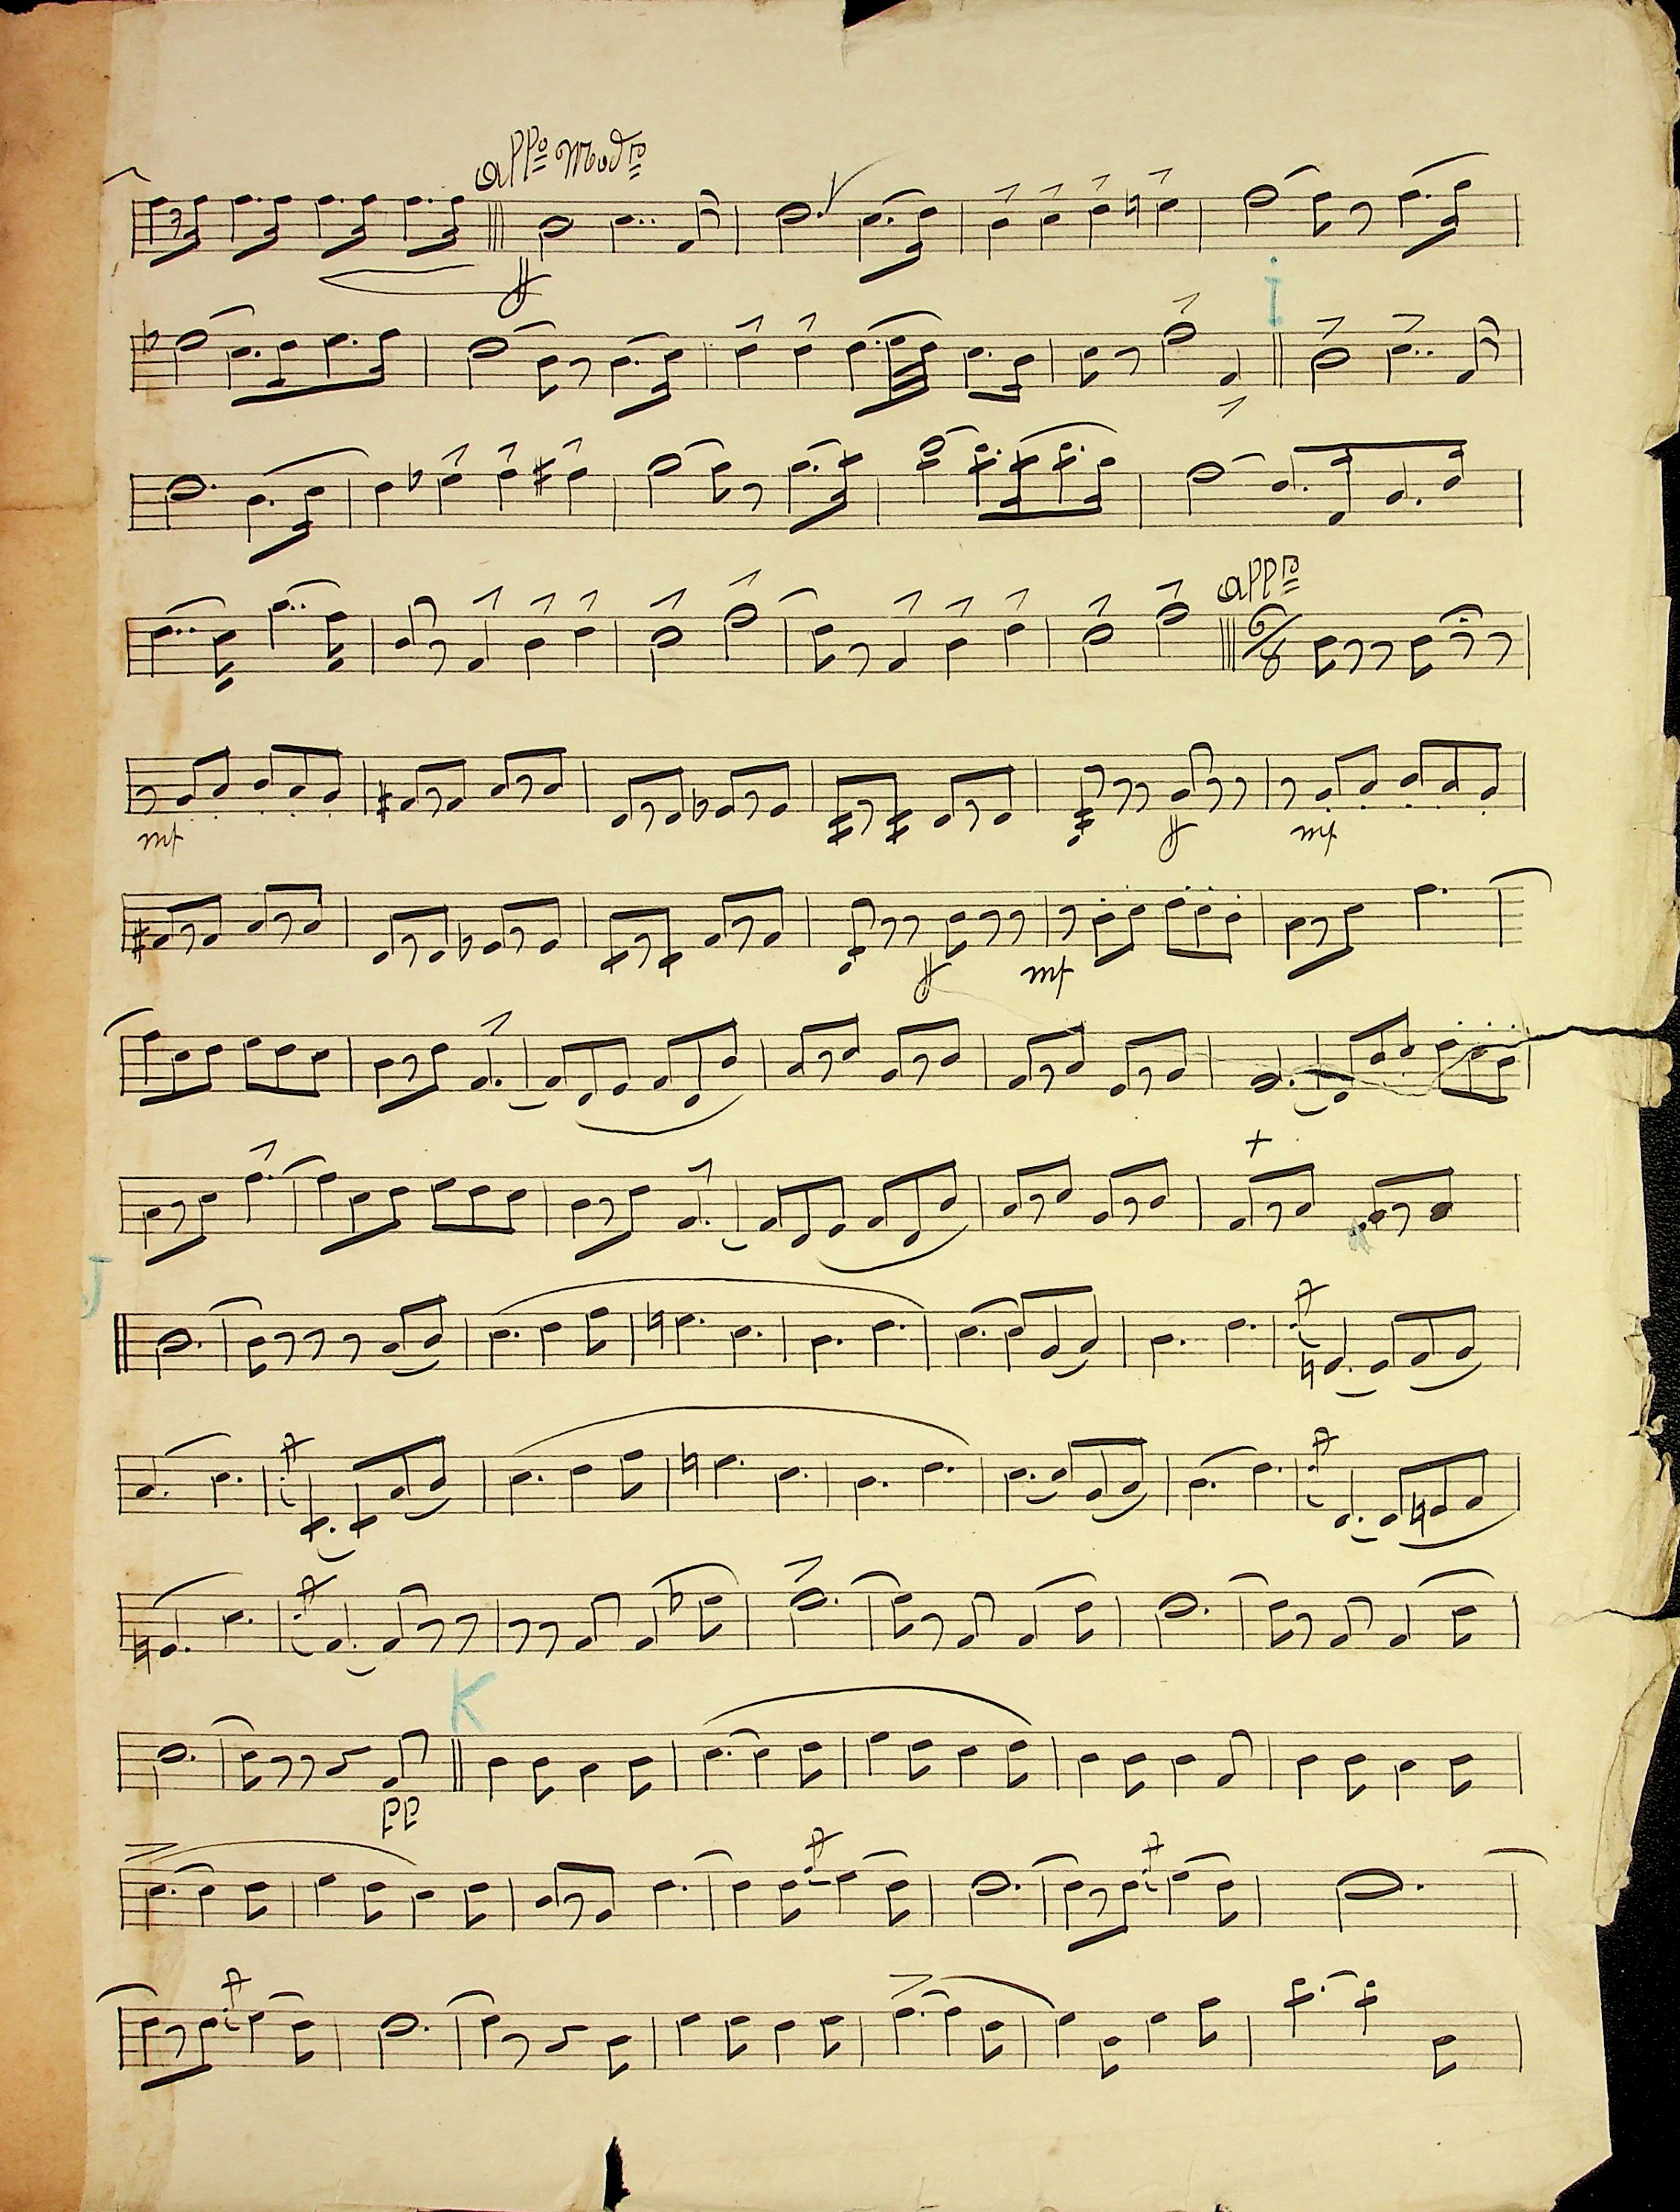 All.º Mod.to
ff
I
All.to
6/8
mf
ff
mf
ff
mf
J
K
pp